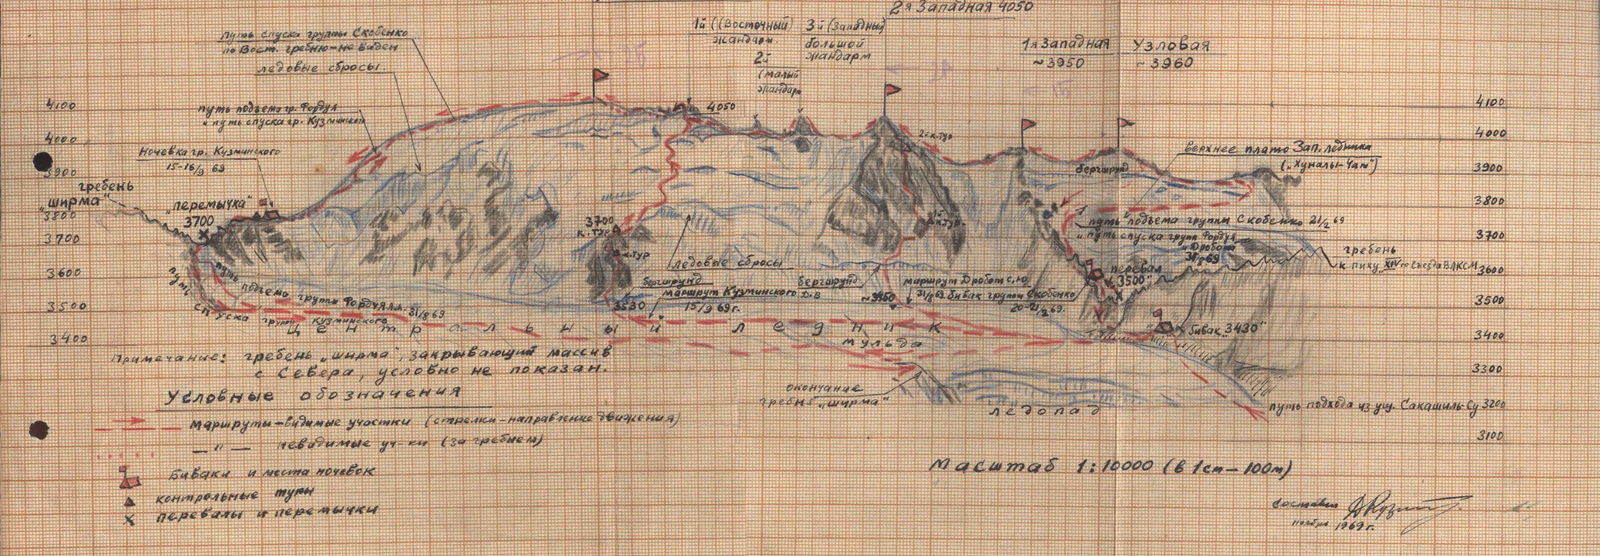 2я Западная 4050
Путь спуска группы Скобенко
по Вост. гребню-не виден
ледовые сбросы
1й (Восточный)
жандарм
2й
(малый
жандарм
3й (Западный)
большой
жандарм
1я Западная
~3950
Узловая
~3960
4100
4000
3900
3800
3700
3600
3500
3400
путь подъема гр. Фордул
и путь спуска гр. Кузминского
Ночевка гр. Кузминского
15-16/9 69
гребень
"ширма"
"перемычка"
3700
4050
2-к.тур
верхнее плато Зап. ледника
("Хуналы-Чат")
бергшрунд
3700
к.тур
к.тур
к.тур
ледовые сбросы
бергшрунд
маршрут Кузминского
15/9 69г.
бергшрунд
3530
маршрут Дробот
бивак группы Скобенко
путь подъема группы Скобенко
"путь спуска групп Фордул
перевал
3500"
гребень
к пику XIV го съезда ВЛКСМ
4100
4000
3900
3800
3700
3600
3500
3400
3300
3200
3100
путь подъема группы
путь спуска группы Кузминского
Центральный ледник
мульда
бивак 3430"
Примечание: гребень "ширма", закрывающий массив
с Севера, условно не показан.
окончание
гребня "ширма"
ледопад
путь подхода из ущ. Сакашиль-Су
Условные обозначения
маршруты-видимые участки (стрелки-направление движения)
— " — невидимые уч-ки (за гребнем)
Биваки и места ночевок
контрольные туры
перевалы и перемычки
Масштаб 1:10000 (в 1см-100м)
Составил
ноябрь 1969г.